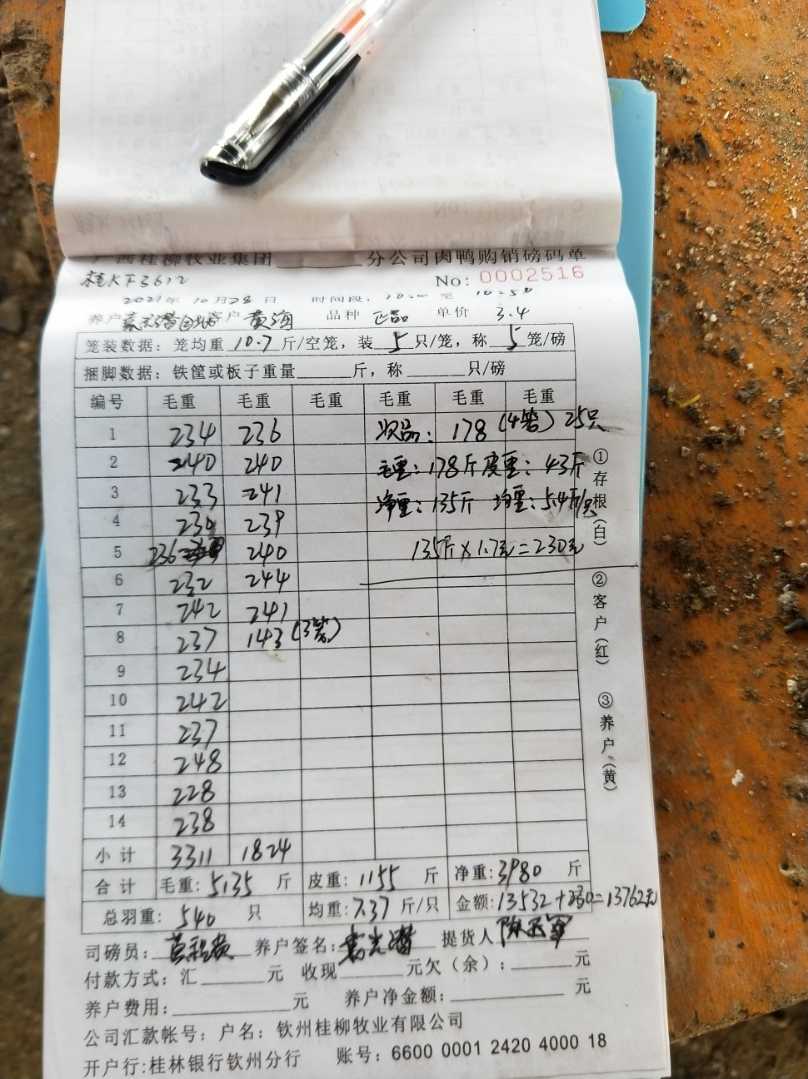 广西桂柳牧业集团______分公司肉鸭购销磅码单
No: 0002516
2021年10月28日 时间段: 至
养户 客户 黄海 品种 正品 单价 3.4
笼装数据：笼均重 10.7 斤/空笼，装 5 只/笼，称 5 笼/磅
捆脚数据：铁筐或板子重量______斤，称______只/磅
编号 毛重 毛重 毛重 毛重 毛重 毛重
1 234 236 次品：178 (4笼) 25只
2 240 240 毛重：178斤 皮重：43斤
3 233 241 净重：135斤 均重：5.4斤/只
4 230 239
5 236 240 135斤×1.7元=230元
6 232 244
7 242 241
8 237 143 (3笼)
9 234
10 242
11 237
12 248
13 228
14 238
小计 3311 1824
合计 毛重：5135 斤 皮重：1155 斤 净重：3980 斤
总羽重：540 只 均重：7.37 斤/只 金额：13532+230=13762元
司磅员： 养户签名： 提货人
付款方式：汇______元 收现______元欠（余）：______元
养户费用：______元 养户净金额：______元
公司汇款帐号：户名：钦州桂柳牧业有限公司
开户行:桂林银行钦州分行 账号：6600 0001 2420 4000 18
①存根（白） ②客户（红） ③养户（黄）